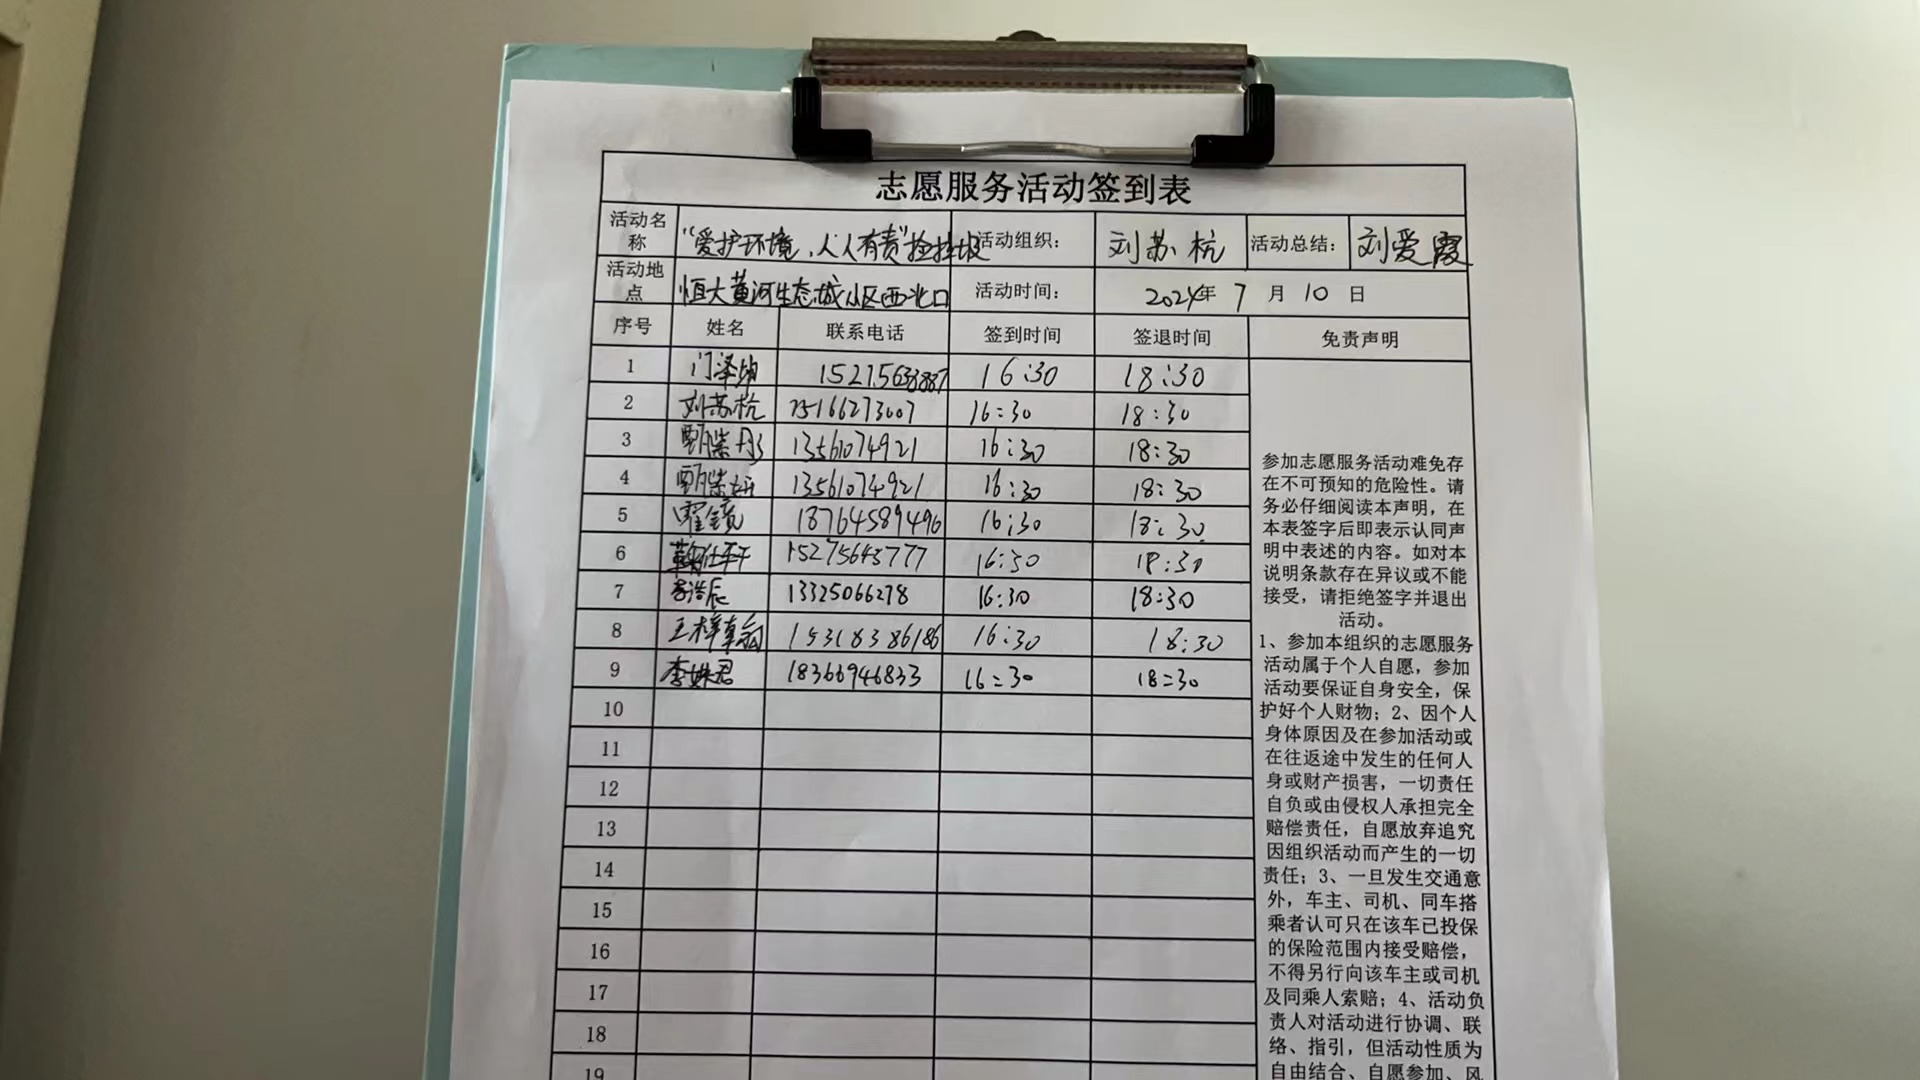 志愿服务活动签到表
活动名称 "爱护环境,人人有责"捡垃圾 活动组织: 刘苏杭 活动总结: 刘爱霞
活动地点 恒大黄河生态城小区西北口 活动时间: 2024年 7 月 10 日
序号 姓名 联系电话 签到时间 签退时间 免责声明
1 门泽 16:30 18:30
2 刘苏杭 15166273007 16:30 18:30
3 甄紫彤 13561074921 16:30 18:30
4 甄紫妍 13561074921 16:30 18:30
5 18764589496 16:30 18:30
6 15275643777 16:30 18:30
7 李浩辰 13325066278 16:30 18:30
8 王梓 15318386186 16:30 18:30
9 李姝君 18366946833 16:30 18:30
10
11
12
13
14
15
16
17
18
19
参加志愿服务活动难免存
在不可预知的危险性。请
务必仔细阅读本声明,在
本表签字后即表示认同声
明中表述的内容。如对本
说明条款存在异议或不能
接受,请拒绝签字并退出
活动。
1、参加本组织的志愿服务
活动属于个人自愿,参加
活动要保证自身安全,保
护好个人财物;2、因个人
身体原因及在参加活动或
在往返途中发生的任何人
身或财产损害,一切责任
自负或由侵权人承担完全
赔偿责任,自愿放弃追究
因组织活动而产生的一切
责任;3、一旦发生交通意
外,车主、司机、同车搭
乘者认可只在该车已投保
的保险范围内接受赔偿,
不得另行向该车主或司机
及同乘人索赔;4、活动负
责人对活动进行协调、联
络、指引,但活动性质为
自由结合、自愿参加、风